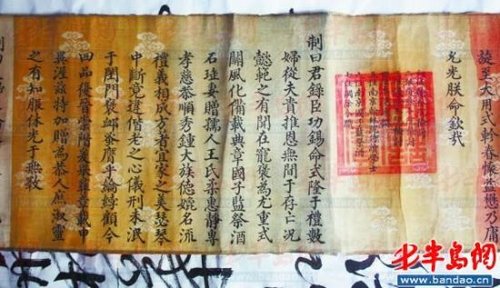 旋至大用式軫眷懷益懋乃庸
允光朕命欽哉
制曰君錄臣功錫命式隆于禮數
婦從夫貴推恩無間于存亡况
懿範之有聞在寵褒為尤重式
關風化備載典章國子監祭酒
石珤妻贈孺人王氏柔惠静專
孝慈恭順秀鍾大族德媲名流
禮義相成方著宜家之美瑟琴
中斷竟違偕老之心儀刑未泯
于閨門褒卹奉膺乎綸綍顧今
四品優晉崇階爰 尊章載申
異渥兹特加贈為恭人庶淑靈
之有知服休光于無斁
制曰
半岛網
www.bandao.cn